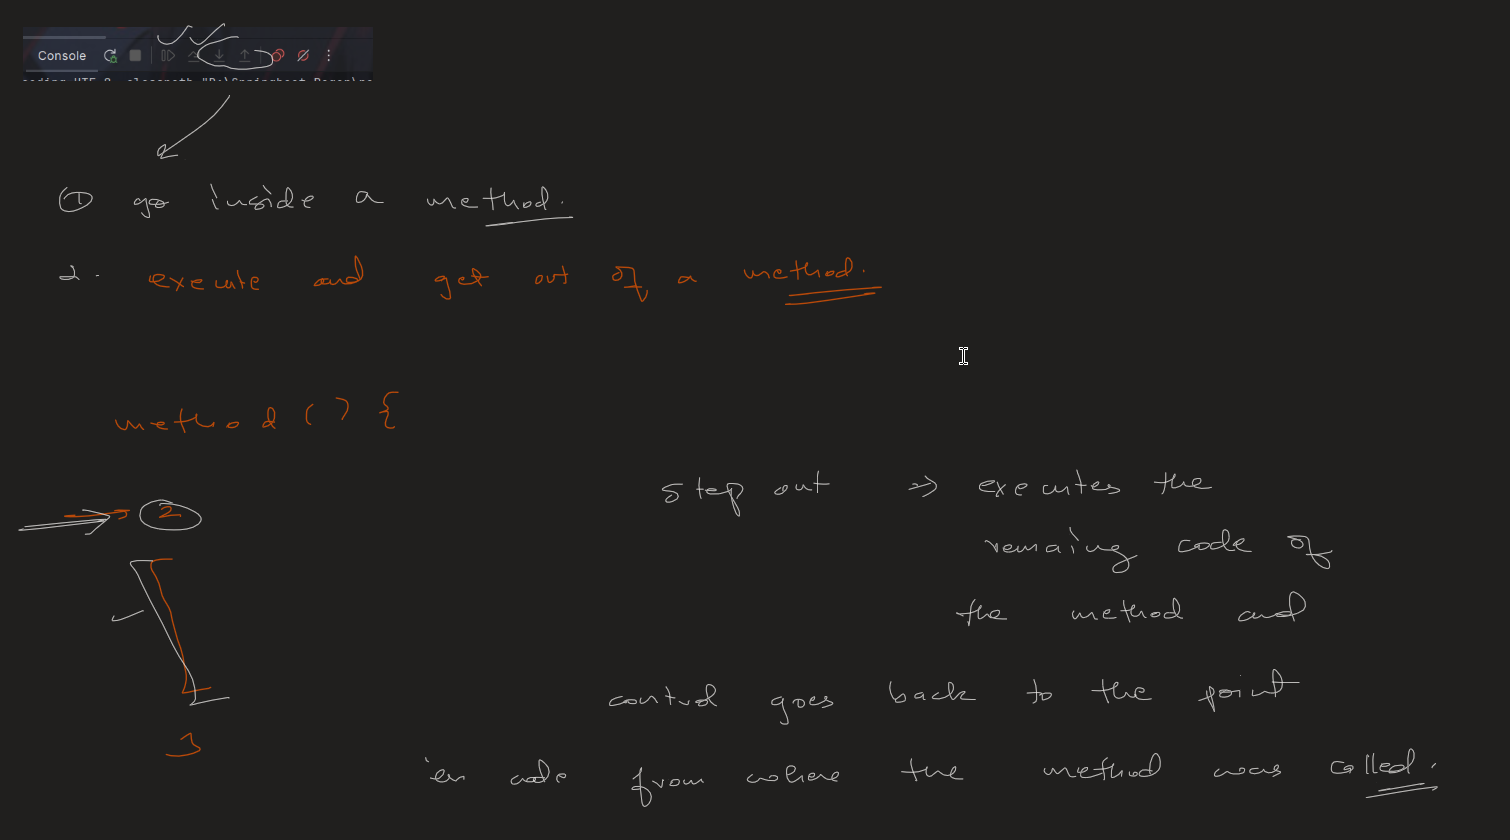 Console
① go inside a method.
2. execute and get out of a method.
method ( ) {
2
3
step out => executes the
remaing code of
the method and
control goes back to the point
in code from where the method was called.